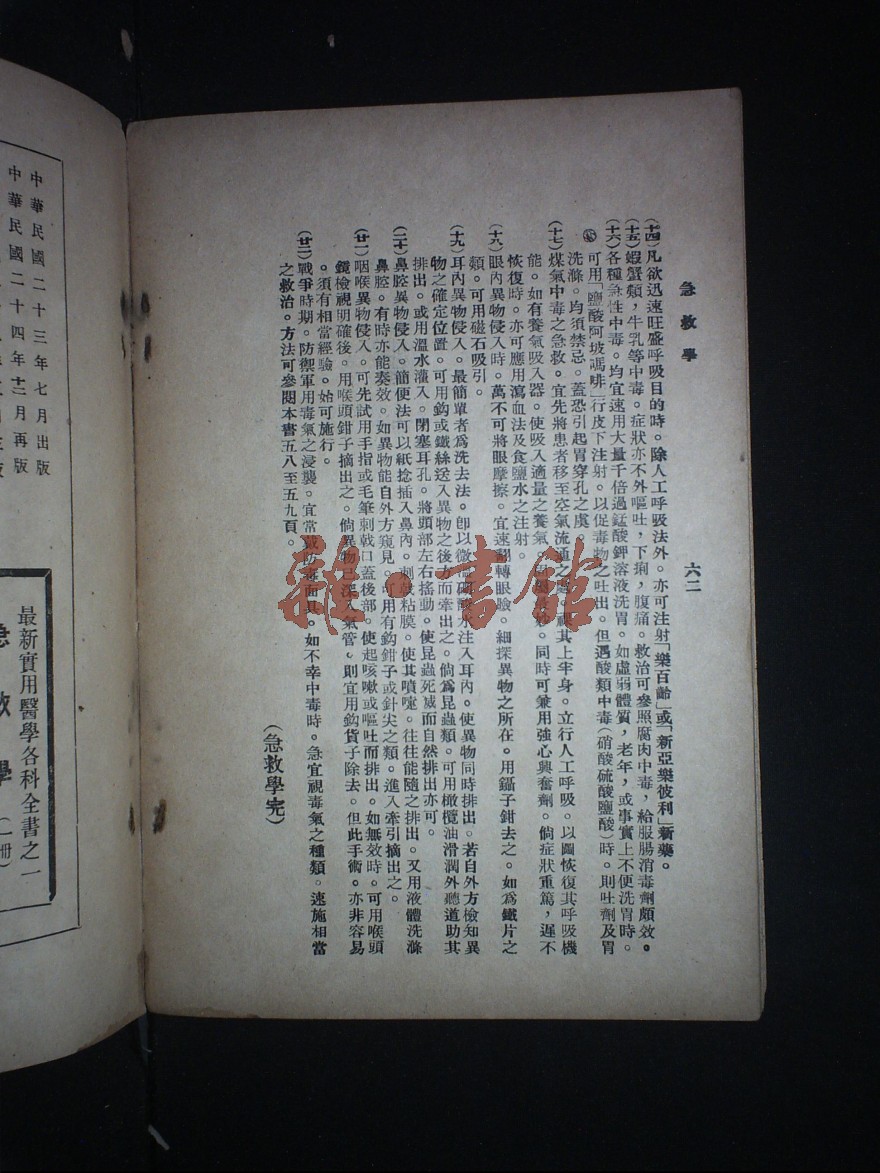 急救學
六二
(十四)凡欲迅速旺盛呼吸目的時。除人工呼吸法外。亦可注射「樂百齡」或「新亞樂彼利」新藥。
(十五)蝦蟹類,牛乳等中毒。症狀亦不外嘔吐,下痢,腹痛。救治可參照腐肉中毒,給服腸消毒劑頗效。
(十六)各種急性中毒。均宜速用大量千倍過錳酸鉀溶液洗胃。如虛弱體質,老年,或事實上不便洗胃時。
可用「鹽酸阿坡嗎啡」行皮下注射。以促毒物之吐出。但遇酸類中毒(硝酸硫酸鹽酸)時。則吐劑及胃
洗滌。均須禁忌。蓋恐引起胃穿孔之虞。
(十七)煤氣中毒之急救。宜先將患者移至空氣流通之處。 其上半身。立行人工呼吸。以圖恢復其呼吸機
能。如有養氣吸入器。使吸入適量之養氣。 同時可兼用強心興奮劑。倘症狀重篤,遲不
恢復時。亦可應用瀉血法及食鹽水之注射。
(十八)眼內異物侵入時。萬不可將眼摩擦。宜速翻轉眼瞼。細探異物之所在。用鑷子鉗去之。如為鐵片之
類。可用磁石吸引。
(十九)耳內異物侵入。最簡單者為洗去法。卽以微溫硼酸水注入耳內。使異物同時排出。若自外方檢知異
物之確定位置。可用鈎或鐵絲送入異物之後方而牽出之。倘為昆蟲類。可用橄欖油滑潤外聽道助其
排出。或用溫水灌入。閉塞耳孔。將頭部左右搖動。使昆蟲死滅而自然排出亦可。
(二十)鼻腔異物侵入。簡便法可以紙捻插入鼻內。刺戟粘膜。使其噴嚏。往往能隨之排出。又用液體洗滌
鼻腔。有時亦能奏效。如異物能自外方窺見。可用有鈎鉗子或針尖之類。進入牽引摘出之。
(廿一)咽喉異物侵入。可先試用手指或毛筆刺戟口蓋後部。使起咳嗽或嘔吐而排出。如無效時。可用喉頭
鏡檢視明確後。用喉頭鉗子摘出之。倘異物已深入氣管。則宜用鈎貨子除去。但此手術。亦非容易
。須有相當經驗。始可施行。
(廿二)戰爭時期。防禦軍用毒氣之浸襲。宜常戴防毒面具。如不幸中毒時。急宜視毒氣之種類。速施相當
之救治。方法可參閱本書五八至五九頁。
(急救學完)
雜·書館
中華民國二十三年七月出版
中華民國二十四年十二月再版
最新實用醫學各科全書之一
急救學(一冊)